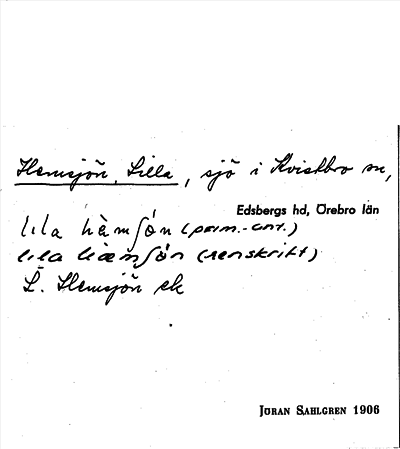 Hemsjön, Lilla, sjö i Kvistbro sn,
Edsbergs hd, Örebro län
lıla hàmʃón (prim.-ant.)
lıla hæmʃón (renskrift)
L. Hemsjön ek
JÖRAN SAHLGREN 1906